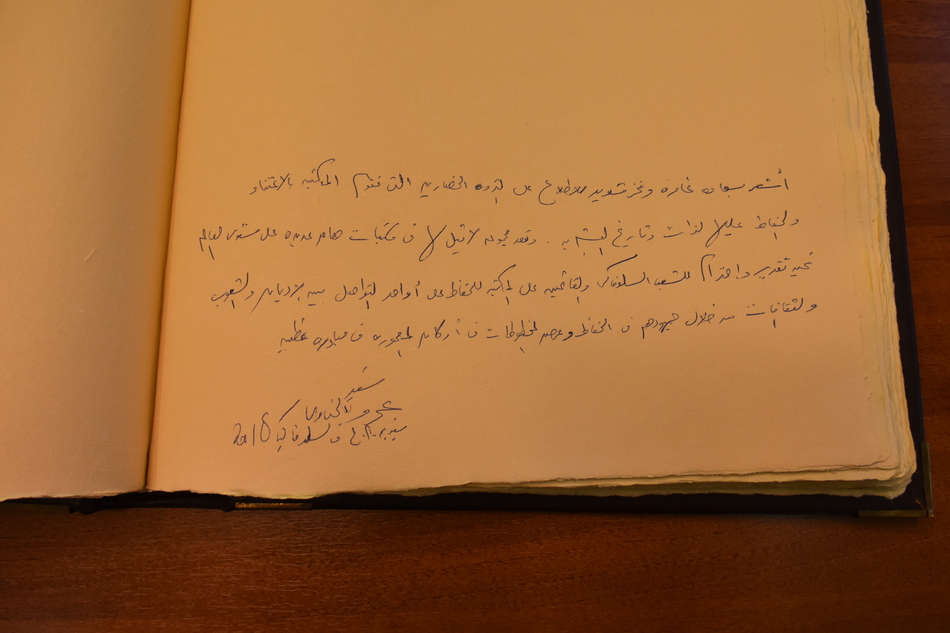 أشعر بسعادة غامرة وفخر شديد للاطلاع على الثروة الحضارية التي تقوم المكتبة بالاعتناء
والحفاظ عليها لتراث وتاريخ البشرية . وتعد مجموعة لا مثيل لها في مكتبات هامة عديدة على مستوى العالم
تحية تقدير واحترام للشعب السلوفاكي والقائمين على المكتبة للحفاظ على أواصر التواصل بين الأديان والشعوب
والثقافات من خلال جهودهم في الحفاظ وعرض المخطوطات في أركان المعمورة في مبادرة عظيمة
سفير
في سلوفاكيا 2018